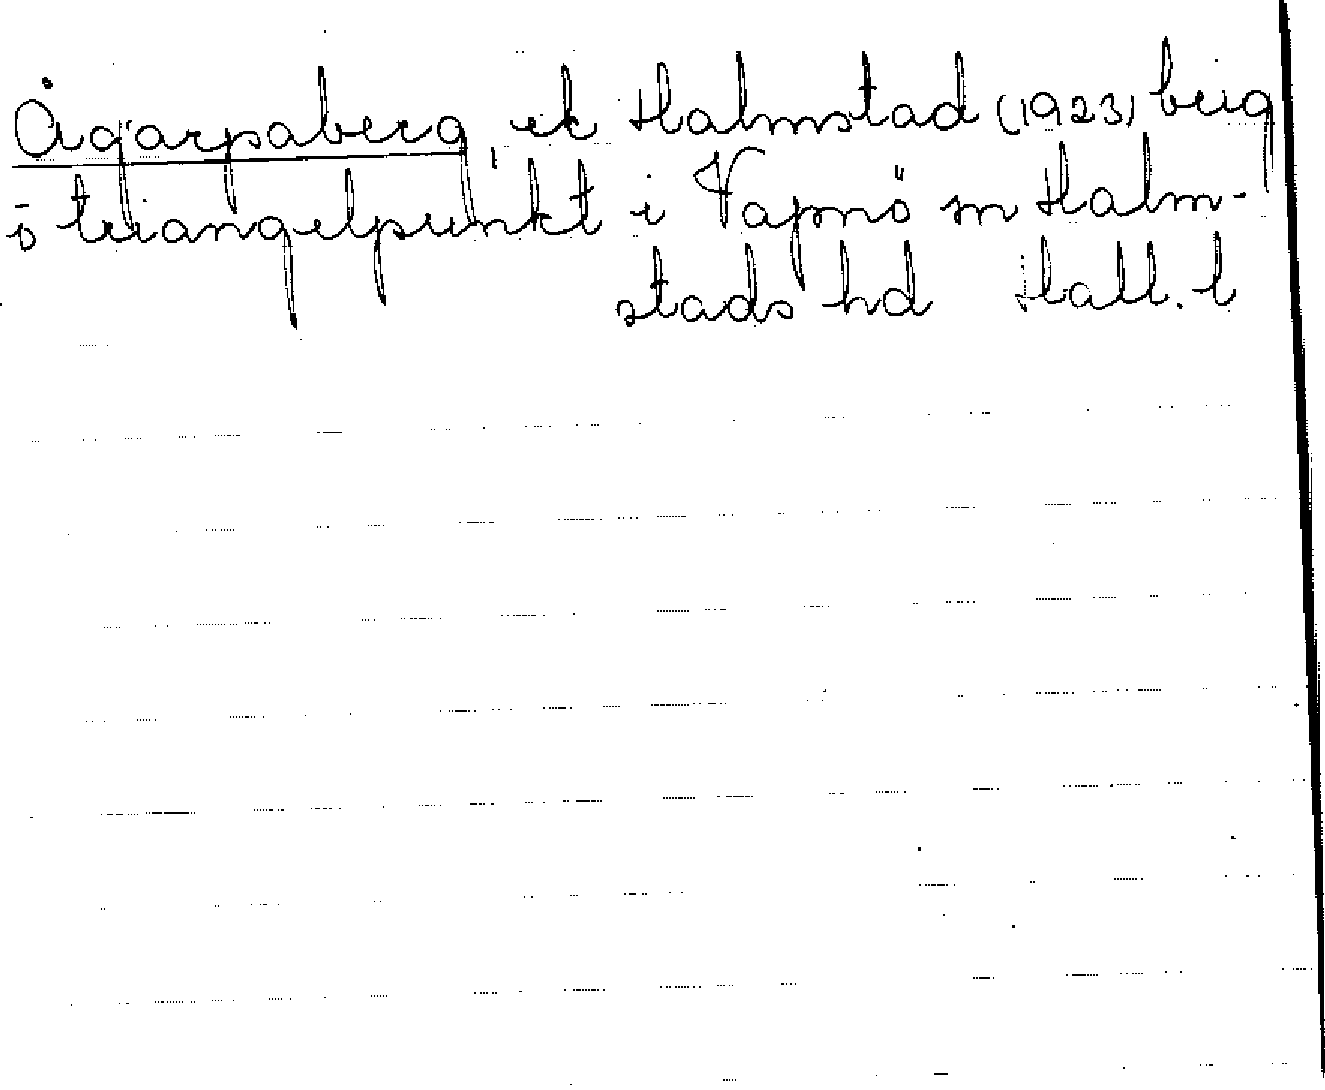 Ågarpaberg, ek Halmstad (1923) berg
o triangelpunkt i Vapnö sn Halm-
stads hd Hall. l